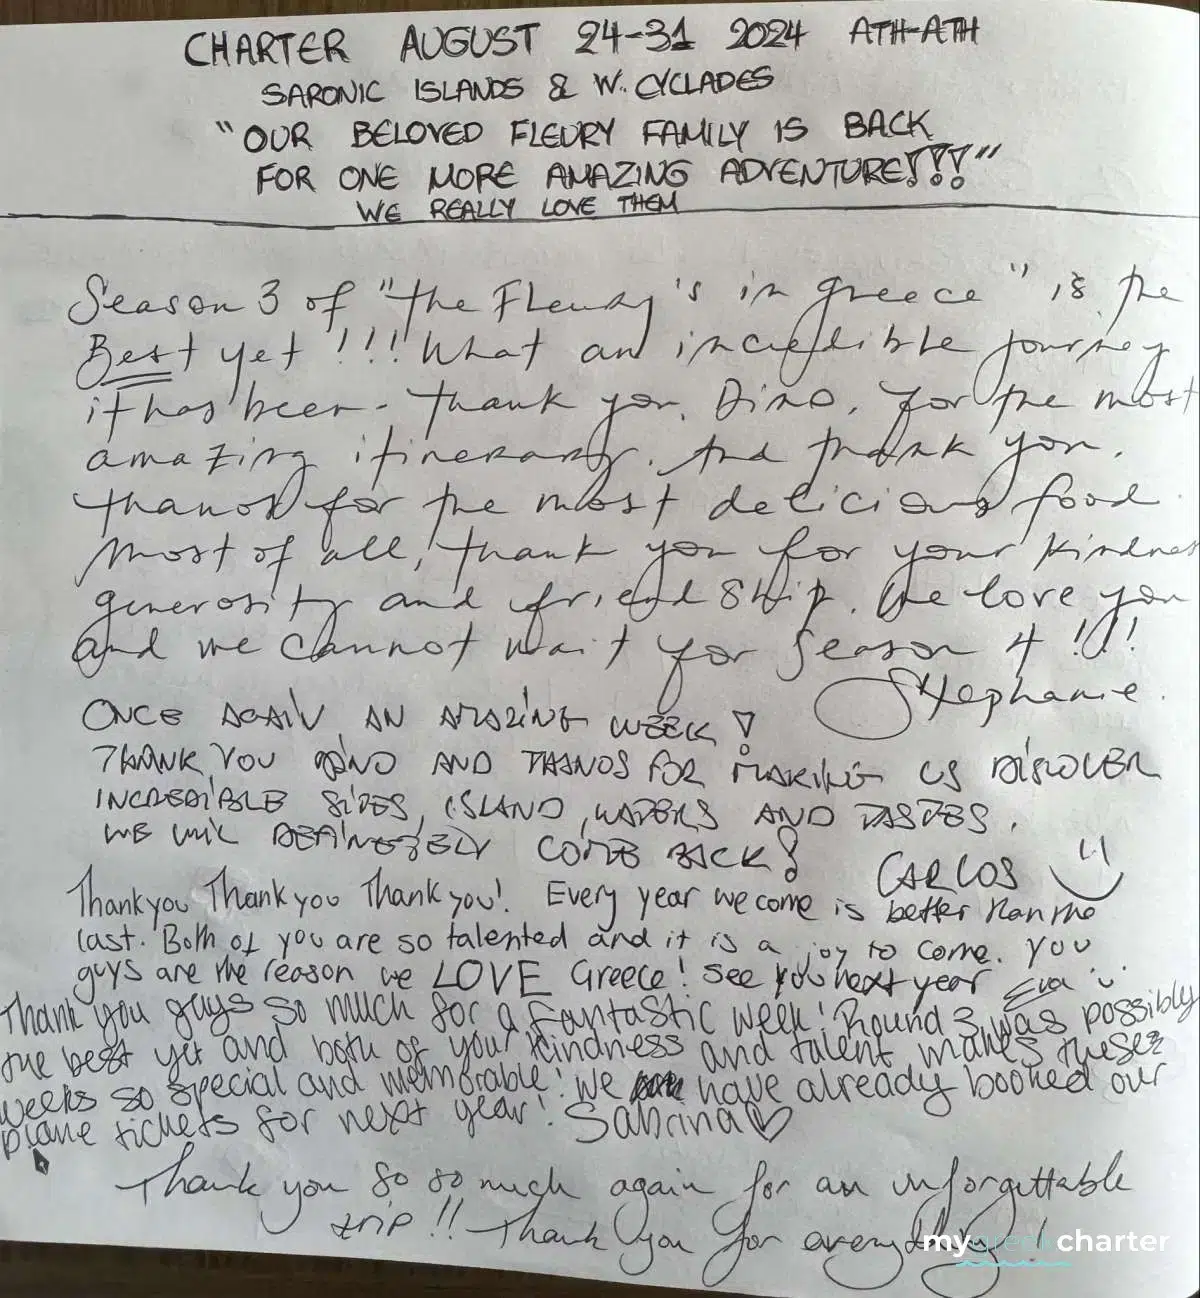 CHARTER AUGUST 24-31 2024 ATH-ATH
SARONIC ISLANDS & W. CYCLADES
"OUR BELOVED FLEURY FAMILY IS BACK
FOR ONE MORE AMAZING ADVENTURE!!!"
WE REALLY LOVE THEM
Season 3 of "the Fleury's in greece" is the
Best yet!!! What an incredible journey
it has been. Thank you, Dino, for the most
amazing itinerary. And thank you,
thanos for the most delicious food.
Most of all, thank you for your kindness
generosity and friendship. We love you
and we cannot wait for Season 4!!!
Stephanie.
ONCE AGAIN AN AMAZING WEEK!
THANK YOU DINO AND THANOS FOR MAKING US DISCOVER
INCREDIBLE SITES, ISLAND, WATERS AND TASTES.
WE WILL DEFINETELY COME BACK!
CARLOS
Thankyou Thankyou Thankyou! Every year we come is better than the
last. Both of you are so talented and it is a joy to come. You
guys are the reason we LOVE Greece! See you next year Eva
Thank you guys so much for a fantastic week! Round 3 was possibly
the best yet and both of your kindness and talent makes these
weeks so special and memorable! We have already booked our
plane tickets for next year! Sabrina
Thank you so so much again for an unforgettable
trip!! Thank you for everything!
mygreekcharter